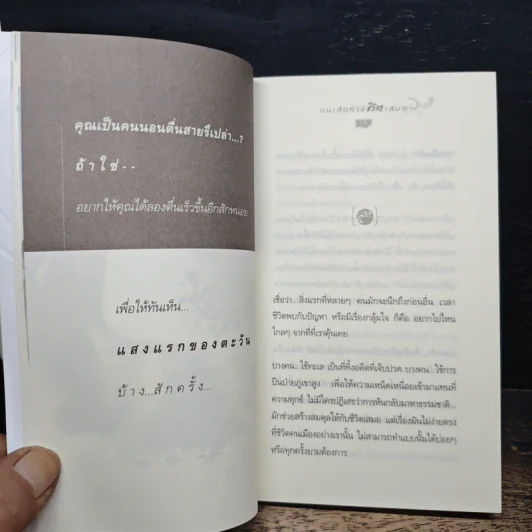 คุณเป็นคนนอนตื่นสายรึเปล่า...?
ถ้าใช่--
อยากให้คุณได้ลองตื่นเร็วขึ้นอีกสักหน่อย
เพื่อให้ทันเห็น...
แสงแรกของตะวัน
บ้าง...สักครั้ง...
บนเส้นทางชีวิตเสมอ
เชื่อว่า...สิ่งแรกที่หลายๆ คนมักจะนึกถึงก่อนอื่น เวลา
ชีวิตพบกับปัญหา หรือมีเรื่องกลุ้มใจ ก็คือ อยากไปไหน
ไกลๆ จากที่ที่เราคุ้นเคย
บางคน...ใช้ทะเล เป็นที่ทิ้งอดีตที่เจ็บปวด บางคน...ใช้การ
ปีนป่ายภูเขาสูง เพื่อให้ความเหนิดเหนื่อยเข้ามาแทนที่
ความทุกข์ ไม่มีใครปฏิเสธว่าการหันกลับมาหาธรรมชาติ...
มักช่วยสร้างสมดุลให้กับชีวิตเสมอ แต่เรื่องมันไม่ง่ายตรง
ที่ชีวิตคนเมืองอย่างเรานั้น ไม่สามารถทำแบบนั้นได้บ่อยๆ
หรือทุกครั้งยามต้องการ